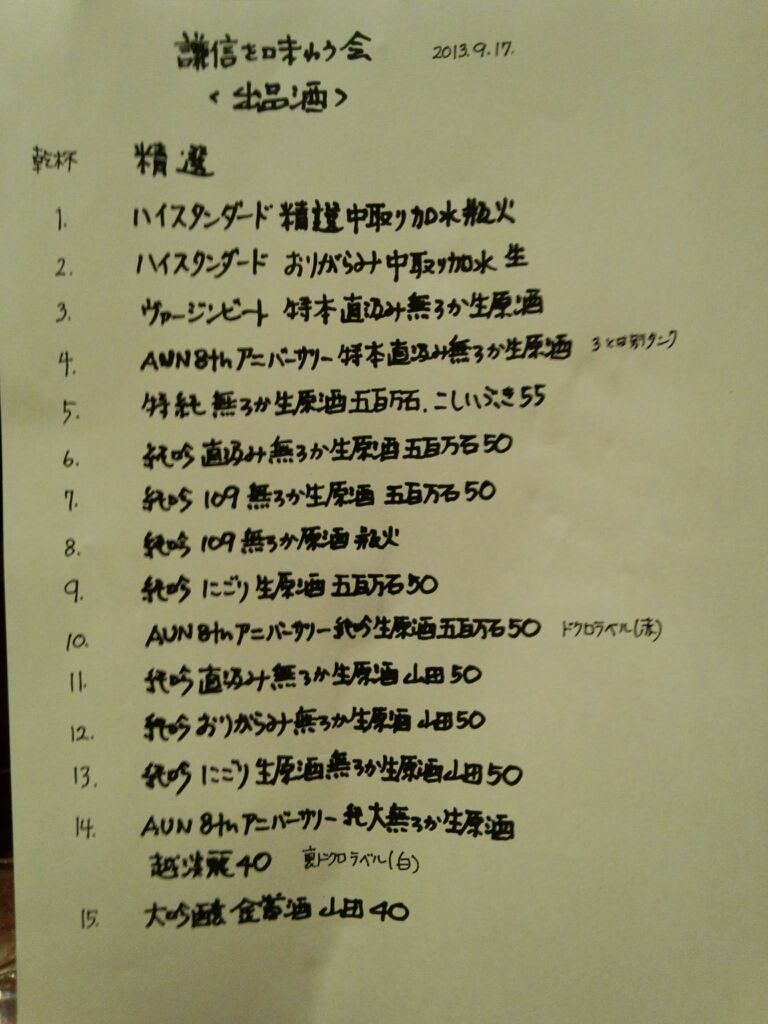 謙信を味わう会 2013.9.17.
<出品酒>
乾杯 精選
1. ハイスタンダード 精選中取り加水瓶火
2. ハイスタンダード おりがらみ中取り加水 生
3. ヴァージンビート 特本直汲み無ろか生原酒
4. AUN 8thアニバーサリー特本直汲み無ろか生原酒 3とは別タンク
5. 特純 無ろか生原酒五百万石.こしいぶき55
6. 純吟 直汲み無ろか生原酒五百万石50
7. 純吟 109 無ろか生原酒 五百万石50
8. 純吟 109 無ろか原酒 瓶火
9. 純吟 にごり生原酒五百万石50
10. AUN 8thアニバーサリー純吟生原酒五百万石50 ドクロラベル(赤)
11. 純吟 直汲み無ろか生原酒山田50
12. 純吟 おりがらみ無ろか生原酒 山田50
13. 純吟 にごり生原酒無ろか生原酒山田50
14. AUN 8thアニバーサリー純大無ろか生原酒
越淡麗40 裏ドクロラベル(白)
15. 大吟醸 金賞酒 山田40